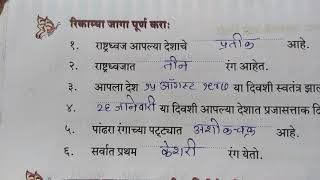 रिकाम्या जागा पूर्ण करा:
१. राष्ट्रध्वज आपल्या देशाचे प्रतीक आहे.
२. राष्ट्रध्वजात तीन रंग आहेत.
३. आपला देश १५ ऑगस्ट १९४७ या दिवशी स्वतंत्र झाला
४. २६ जानेवारी या दिवशी आपल्या देशात प्रजासत्ताक दि
५. पांढरा रंगाच्या पट्ट्यात अशोकचक्र आहे.
६. सर्वात प्रथम केशरी रंग येतो.